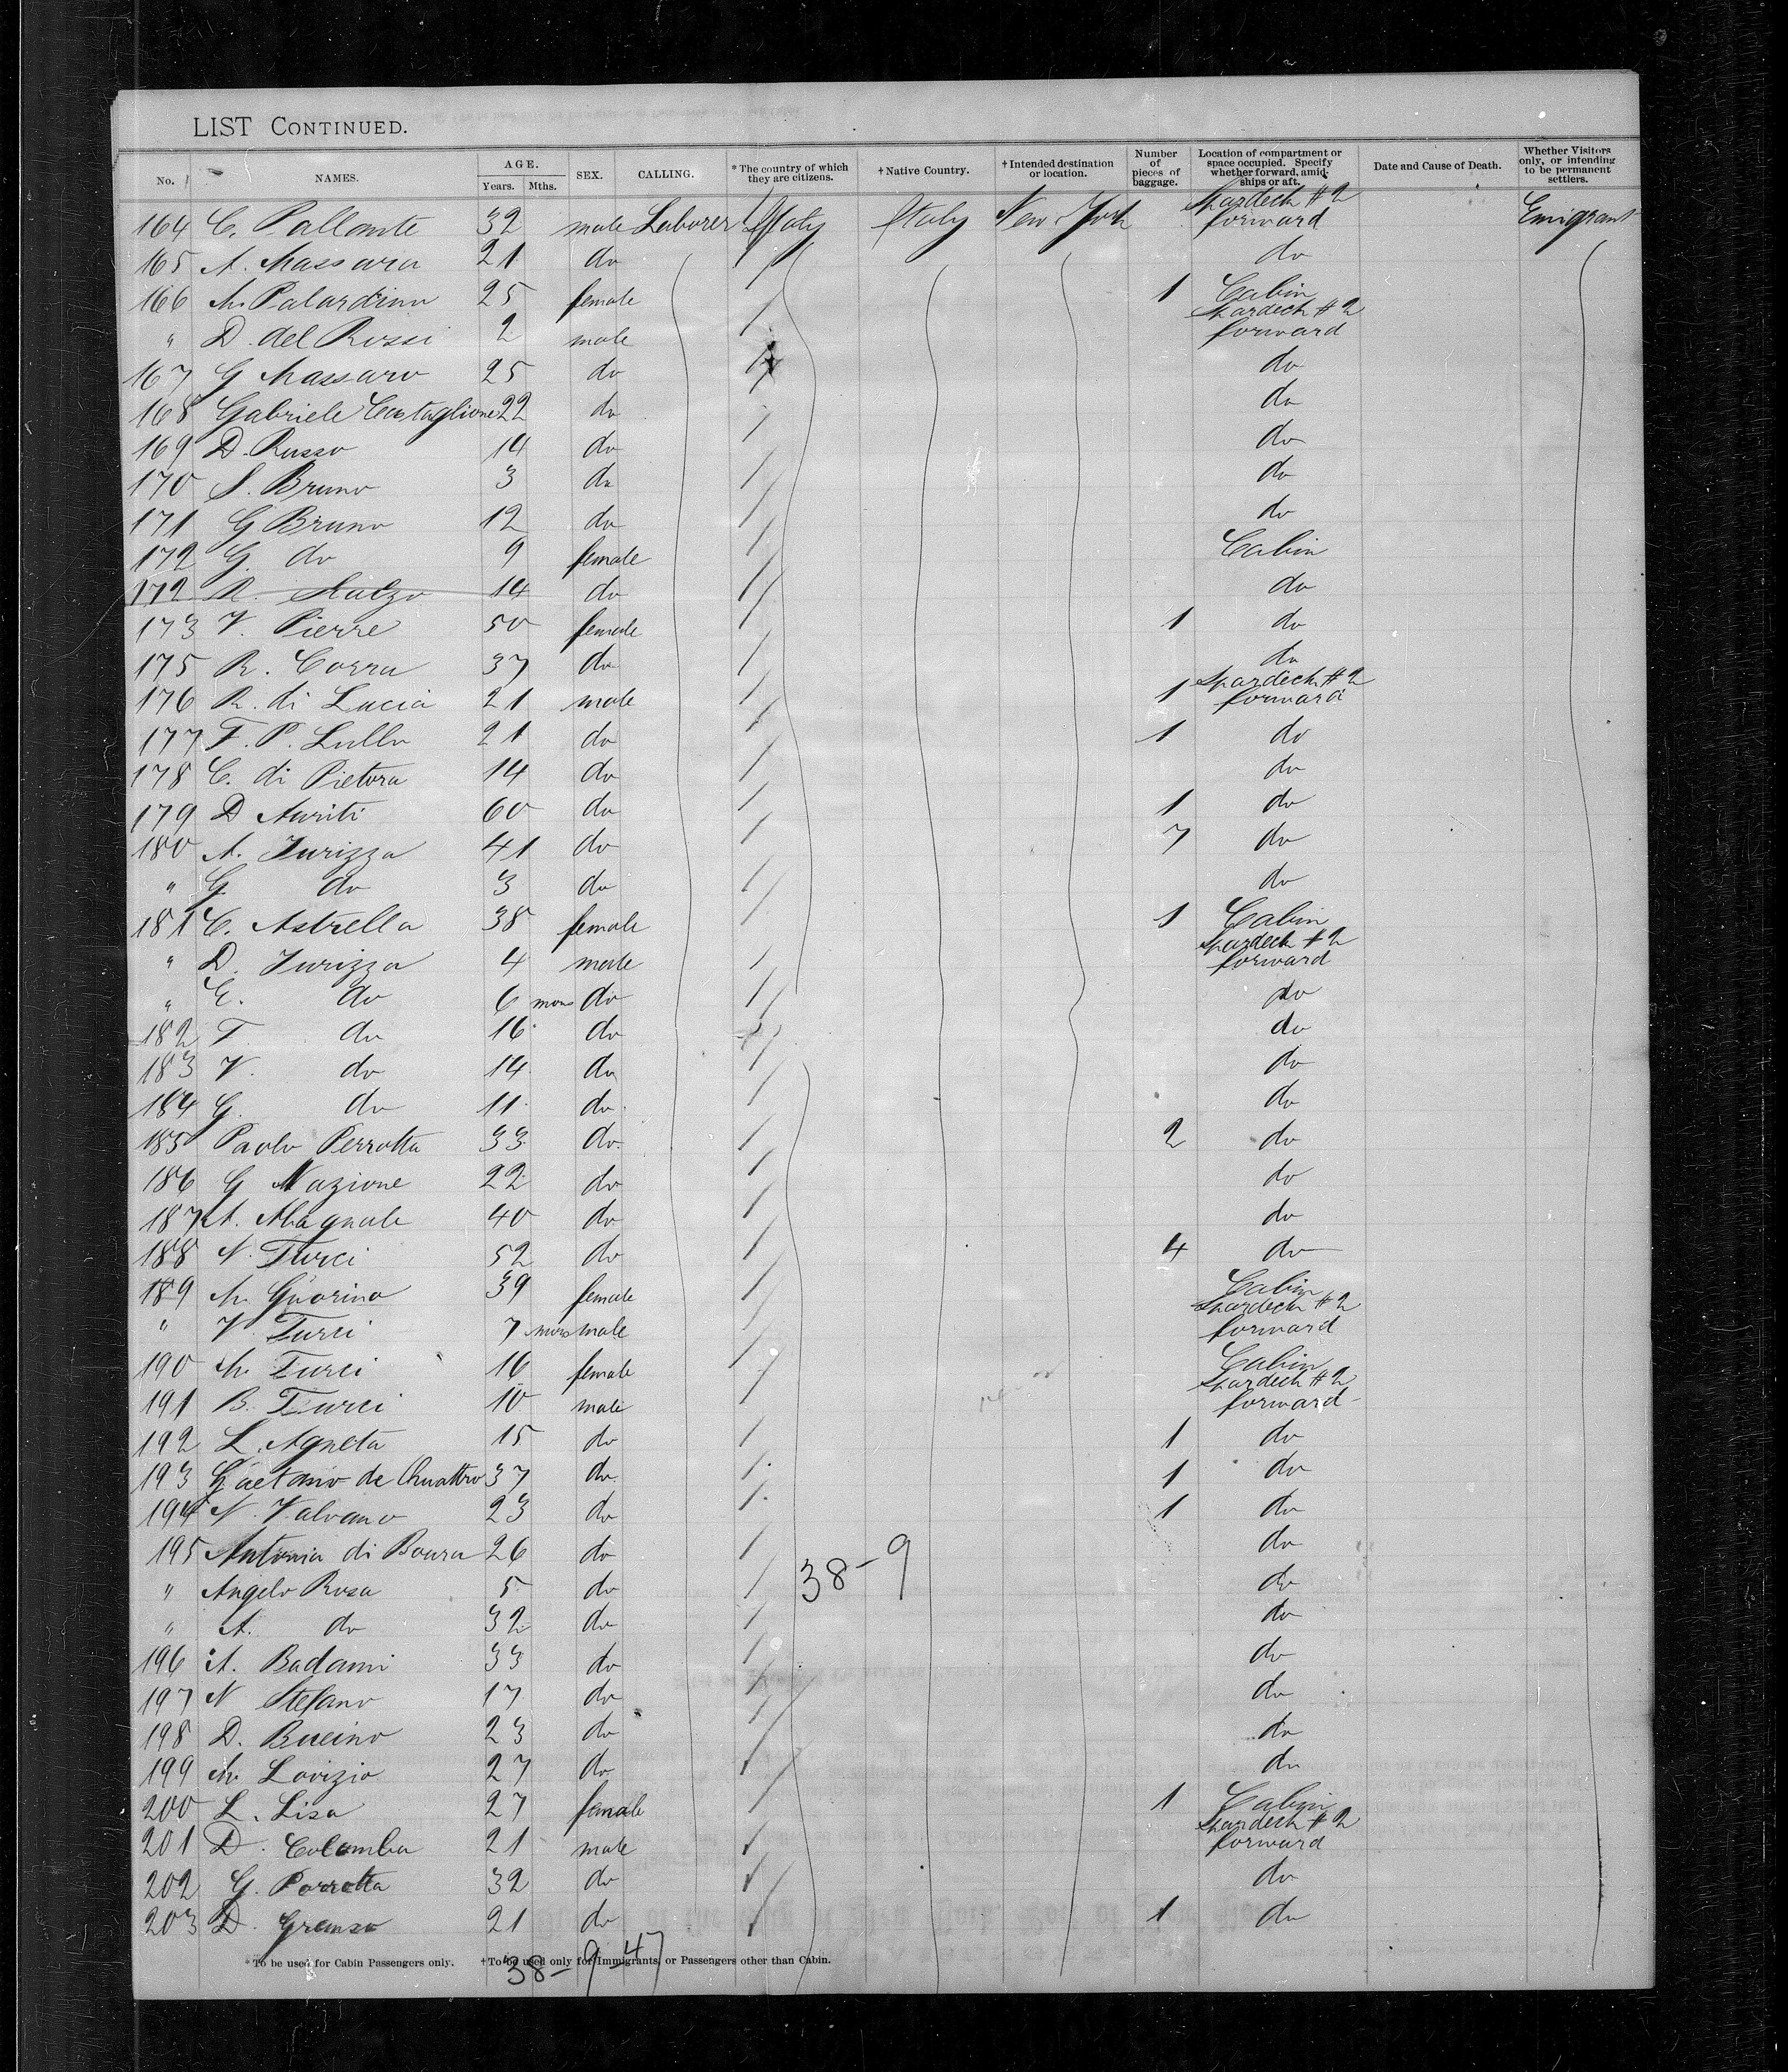 LIST CONTINUED.
No. NAMES. AGE. Years. Mths. SEX. CALLING. *The country of which they are citizens. †Native Country. †Intended destination or location. Number of pieces of baggage. Location of compartment or space occupied. Specify whether forward, amidships or aft. Date and Cause of Death. Whether Visitors only, or intending to be permanent settlers.
164 C. Pallonte 32 male Laborer Italy Italy New York Spardeck #2 forward Emigrant
165 A. Massara 21 do do
166 M. Palardino 25 female 1 Cabin
" D. del Rossi 2 male Spardeck #2 forward
167 G Massaro 25 do do
168 Gabriele Castaglione 22 do do
169 D. Russo 14 do do
170 S. Bruno 3 do do
171 G Bruno 12 do do
172 G. do 9 female Cabin
172 R. 14 do do
173 V. Pierre 50 female 1 do
175 R. Corra 37 do do
176 R. di Lucia 21 male 1 Spardeck #2 forward
177 F. P. Lullo 21 do 1 do
178 C. di Pietora 14 do do
179 D Auriti 60 do 1 do
180 A. Jurizza 41 do 7 do
" G do 3 do do
181 C. Astrella 38 female 1 Cabin
" D. Jurizza 4 male Spardeck #2 forward
" E. do 6 mons do do
182 T do 16 do do
183 V. do 14 do do
184 G. do 11 do do
185 Paolo Perrotta 33 do 2 do
186 G Nazione 22 do do
187 A. Magnale 40 do do
188 N. Turci 52 do 4 do
189 M. Guorino 39 female Cabin
" V. Turci 7 mons male Spardeck #2 forward
190 M. Turci 16 female Cabin
191 B. Turci 10 male Spardeck #2 forward
192 L. Agneta 15 do 1 do
193 Gaetano de Quattro 37 do 1 do
194 N. Valvano 23 do 1 do
195 Antonia di Boura 26 do do
38-9
" Angelo Rosa 5 do do
" A. do 32 do do
196 A. Badami 33 do do
197 N Stefano 17 do do
198 D. Bucino 23 do do
199 M. Lovizio 27 do do
200 L. Lisa 27 female 1 Cabin
201 D. Colomba 21 male Spardeck #2 forward
202 G. Porrotta 32 do do
203 D. Gramso 21 do 1 do
*To be used for Cabin Passengers only. †To be used only for Immigrants, or Passengers other than Cabin.
38-9-47